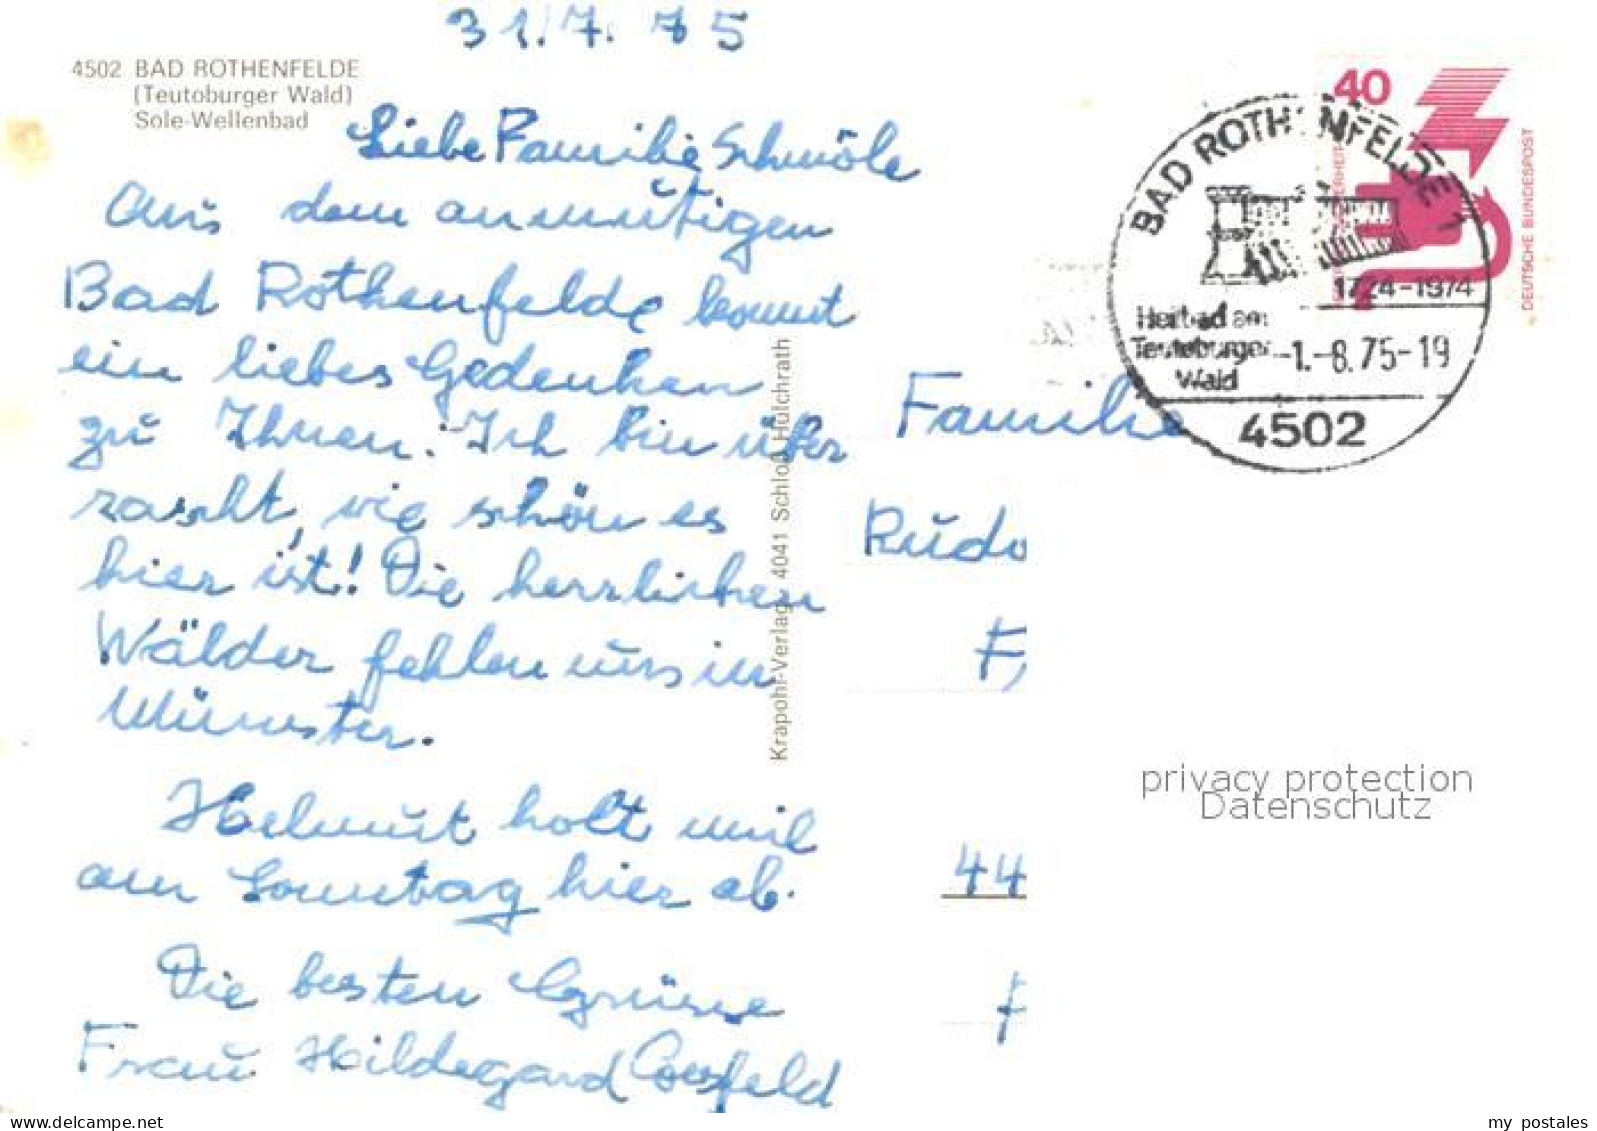 31.7.75
4502 BAD ROTHENFELDE
(Teutoburger Wald)
Sole-Wellenbad
Liebe Familie Schmöle
Aus dem anmutigen
Bad Rothenfelde kommt
ein liebes Gedenken
zu Ihnen. Ich bin über
rascht, wie schön es
hier ist! Die herrlichen
Wälder fehlen uns in
Münster.
Helmut holt mich
am Sonntag hier ab.
Die besten Grüsse
Frau Hildegard Coesfeld
Krapohl-Verlag 4041 Schloß Hülchrath
40
DEUTSCHE BUNDESPOST
BAD ROTHENFELDE 1
1724-1974
Heilbad am
Teutoburger
Wald
-1.-8.75-19
4502
Familie
Rudo
F
44
F
privacy protection
Datenschutz
www.delcampe.net
my_postales